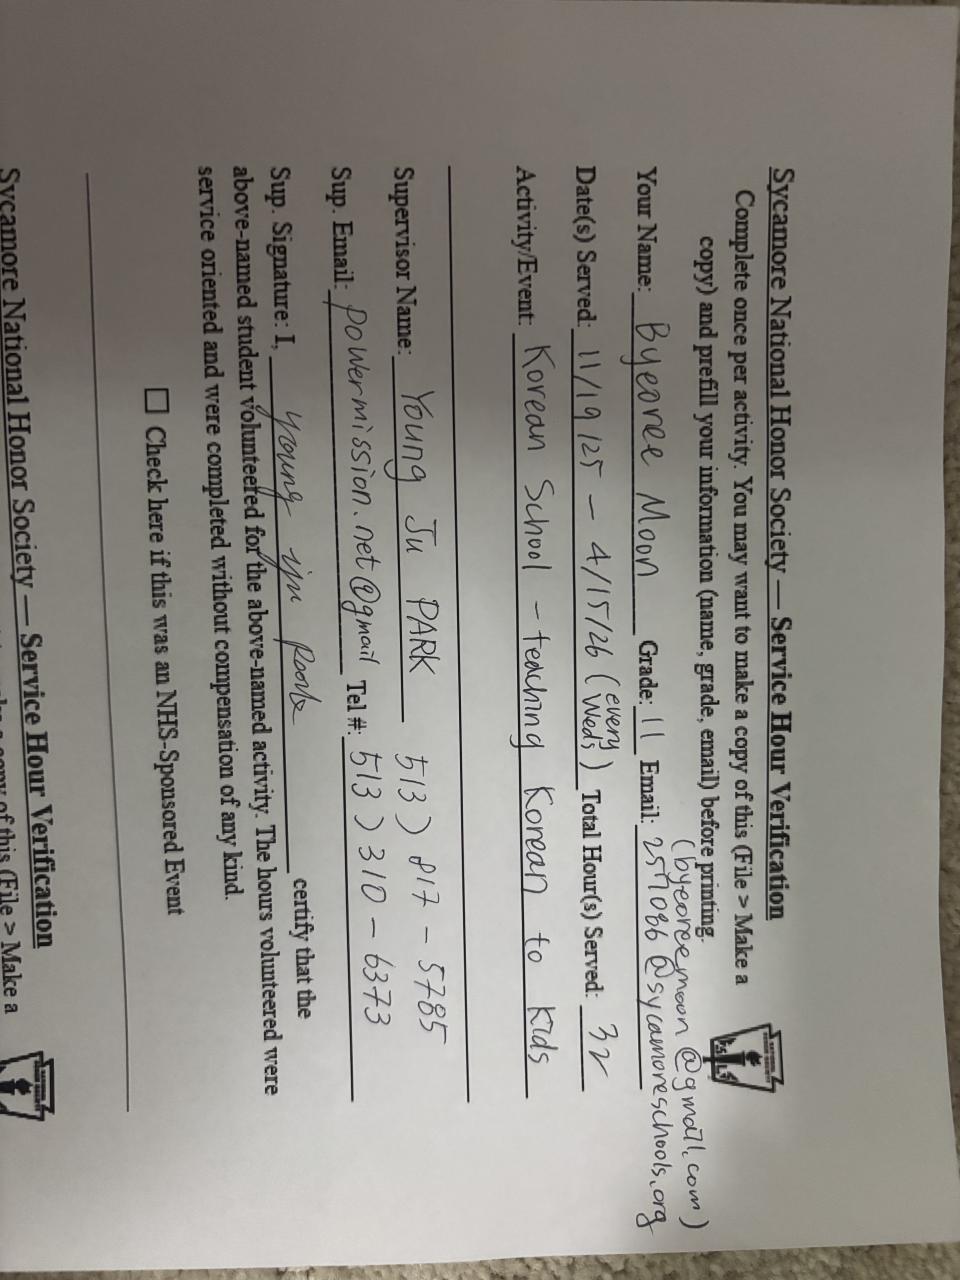 Sycamore National Honor Society — Service Hour Verification
Complete once per activity. You may want to make a copy of this (File > Make a
copy) and prefill your information (name, grade, email) before printing.
(byeoreemoon@gmail.com)
Your Name: Byeoree Moon Grade: 11 Email: 257086@sycamoreschools.org
Date(s) Served: 11/19/25 - 4/15/26 (every Weds) Total Hour(s) Served: 32
Activity/Event: Korean School - teaching Korean to kids
Supervisor Name: Young Ju PARK 513) 817 - 5785
Sup. Email: powermission.net@gmail Tel #: 513) 310 - 6373
Sup. Signature: I, young ju Park certify that the
above-named student volunteered for the above-named activity. The hours volunteered were
service oriented and were completed without compensation of any kind.
☐ Check here if this was an NHS-Sponsored Event
Sycamore National Honor Society — Service Hour Verification
copy of this (File > Make a